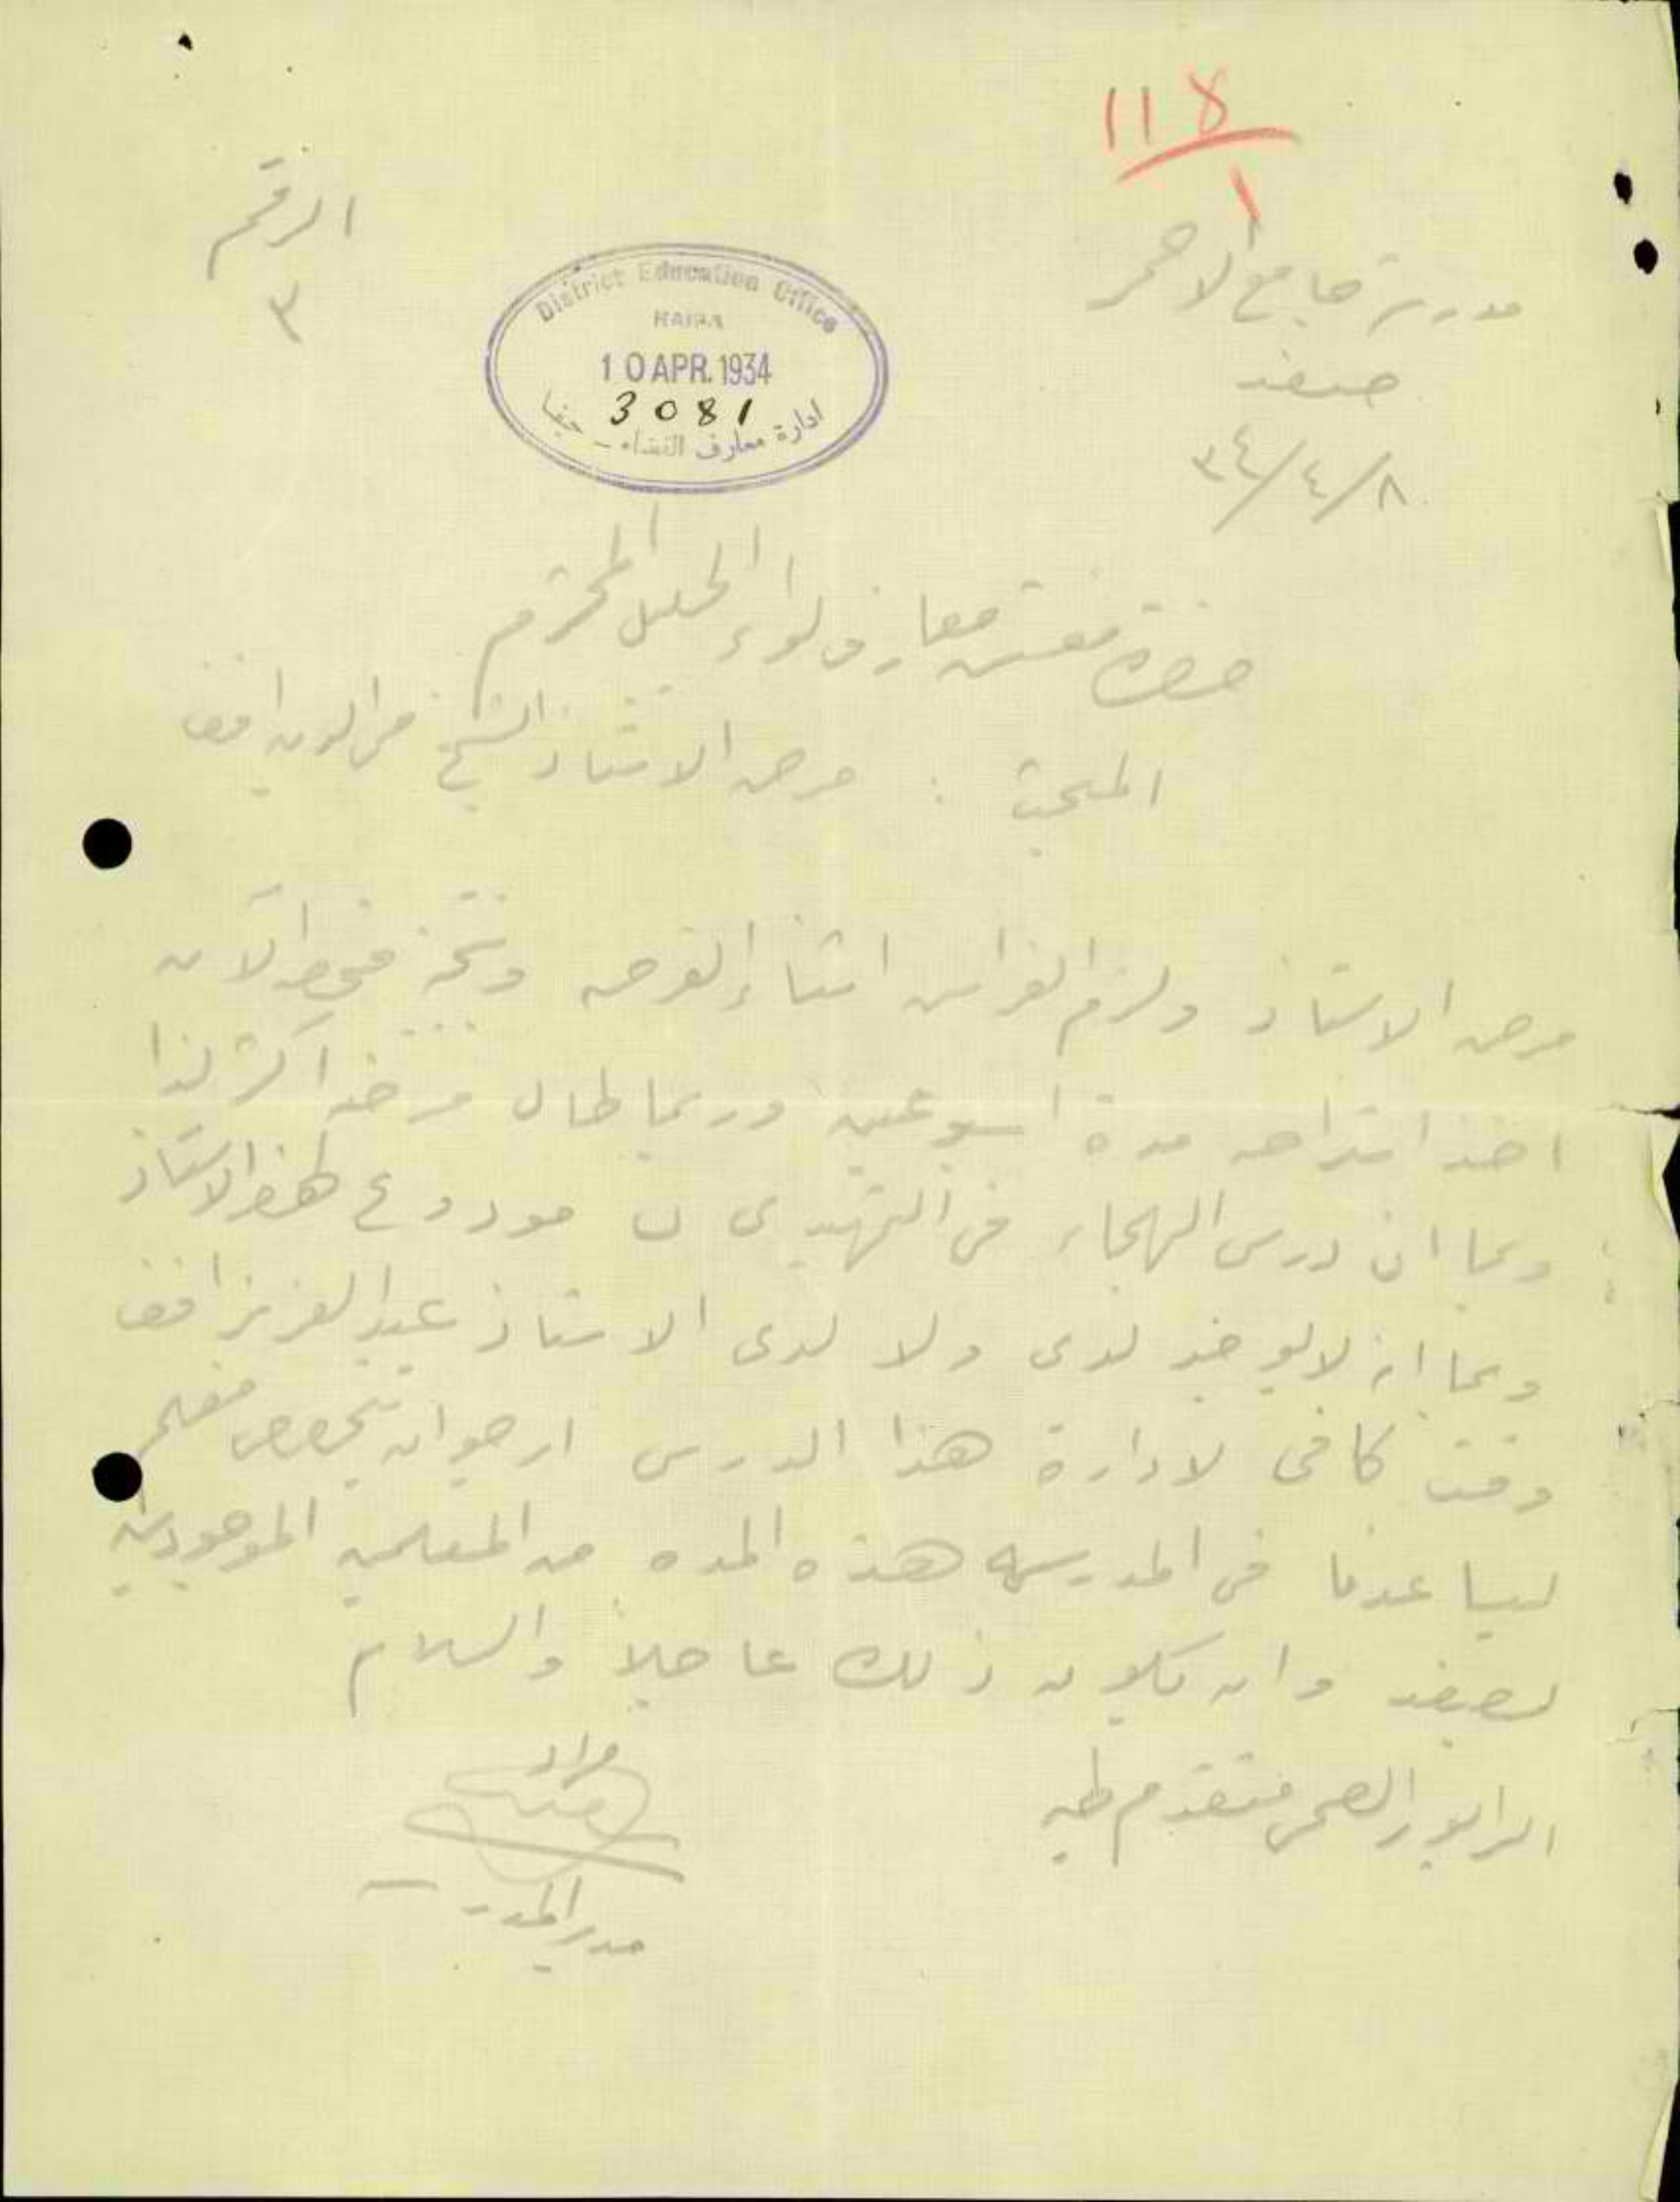 118
1
الرقم
٣
مدرسة جامع الاحمر
صفد
٣٤/٤/٨
District Education Office
HAIFA
10 APR. 1934
3081
ادارة معارف القضاء - حيفا
حضرة مفتش معارف لواء الجليل المحترم
المبحث : مرض الاستاذ الشيخ الدين افندي
مرض الاستاذ ولزم الفراش اثناء الفرصه ونتيجة فحصه الآن
اخذ استراحه مدة اسبوعين وربما طال مرضه اكثر لذا
وبما ان درس الهجاء في التمهيدي ب مودوع لهذا الاستاذ
وبما انه لا يوجد لدى ولا لدى الاستاذ عبد العزيز افندي
وقت كافي لادارة هذا الدرس ارجو ان تخصص معلم
ليساعدنا في المدرسه هذه المده من المعلمين الموجودين
بصفد وان يكون ذلك عاجلاً والسلام
الرابور الصحي متقدم طيه
مدير المدرسة